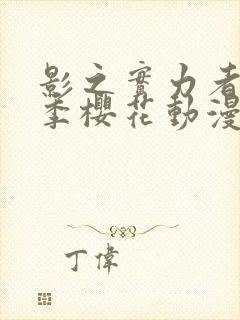 影之實力者
季櫻花動漫
丁偉